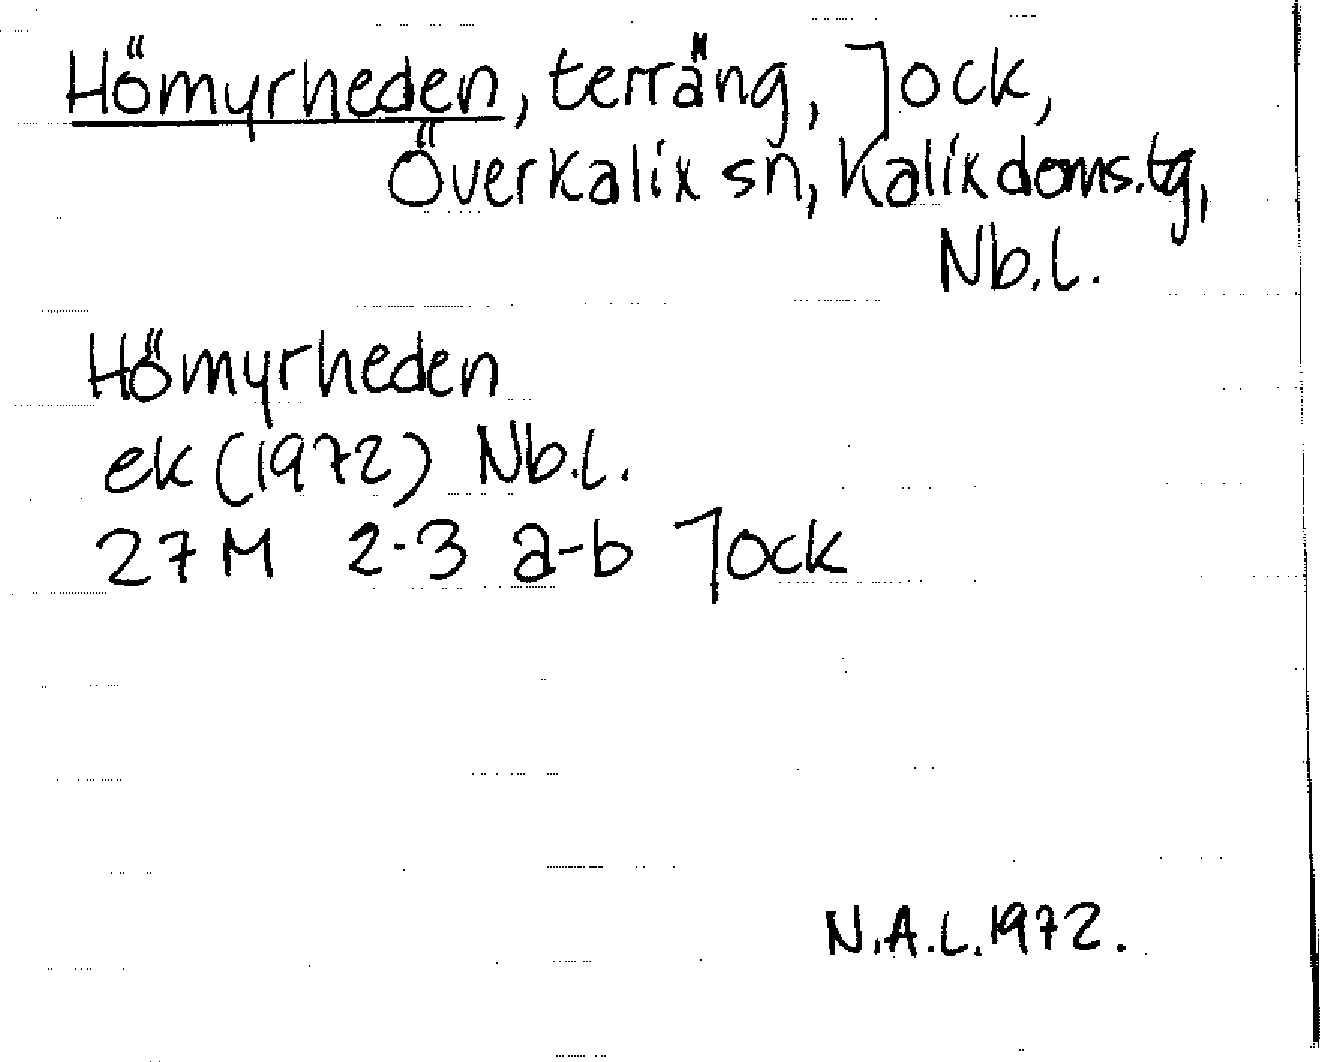 Hömyrheden, terräng, Jock,
Överkalix sn, Kalix doms.tg,
Nb.l.
Hömyrheden
ek (1972) Nb.l.
27 M 2-3 a-b Jock
N.A.L. 1972.